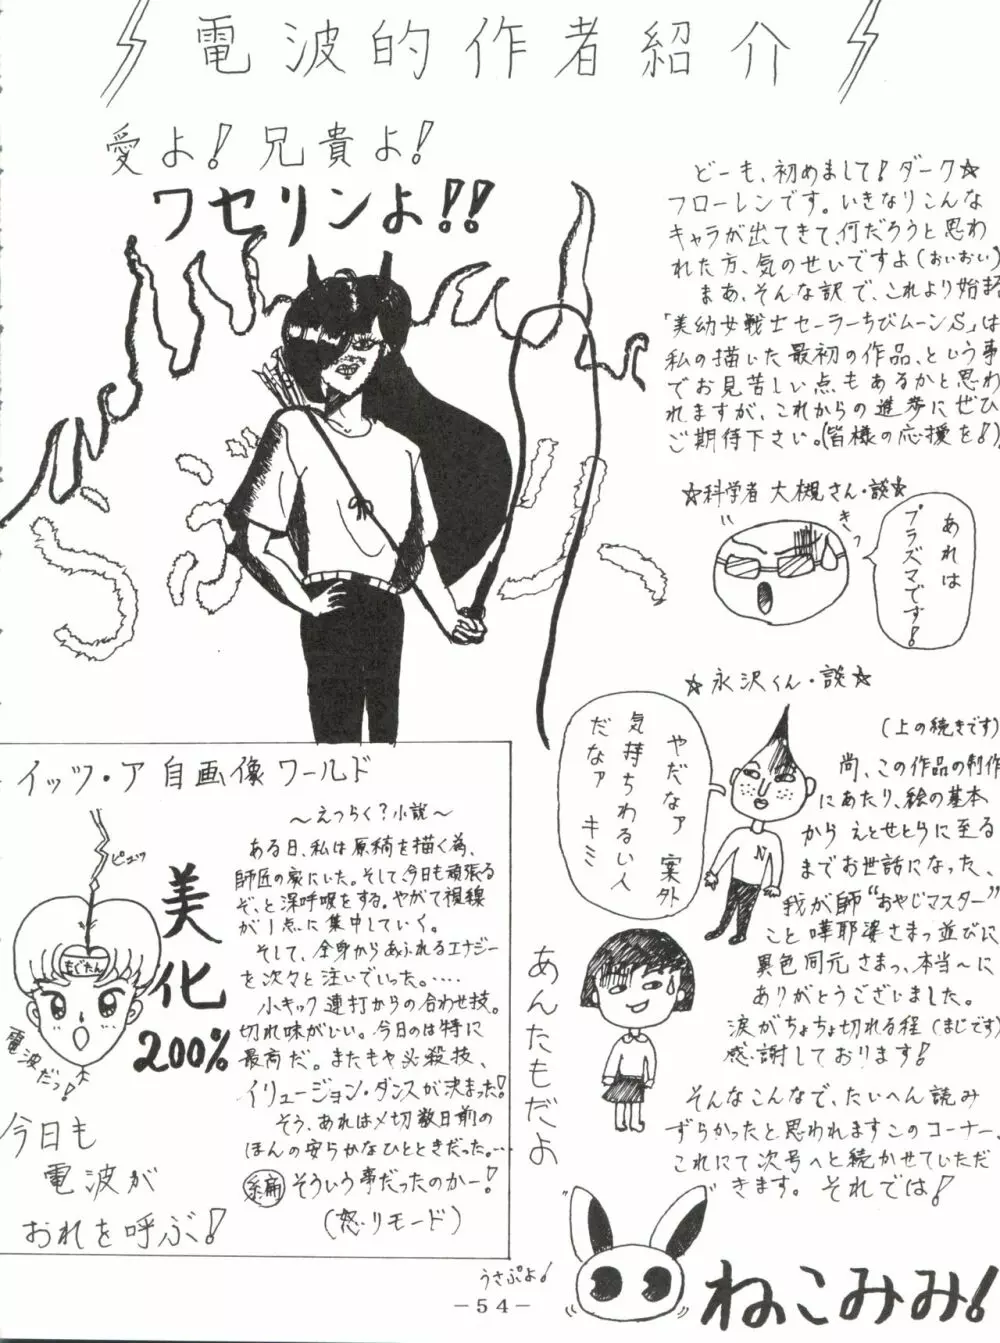 電波的作者紹介
愛よ!兄貴よ!
ワセリンよ!!
どーも、初めまして!ダーク☆
フローレンです。いきなりこんな
キャラが出てきて、何だろうと思わ
れた方、気のせいですよ(おいおい)
まあ、そんな訳で、これより始まる
「美幼女戦士セーラーちびムーンS」は
私の描いた最初の作品、という事
でお見苦しい点もあるかと思わ
れますが、これからの進歩にぜひ
ご期待下さい。(皆様の応援を!)
☆科学者 大槻さん・談☆
きっ
あれは
プラズマです!
☆永沢くん・談☆
やだなァ 案外
気持ちわるい人
だなァ キミ
N
あんたもだよ
(上の続きです)
尚、この作品の制作
にあたり、絵の基本
から えとせとらに至る
までお世話になった、
我が師“おやじマスター”
こと 嘩耶婆さまっ並びに
異色同元さまっ、本当〜に
ありがとうございました。
涙がちょちょ切れる程(まじです)
感謝しております!
そんなこんなで、たいへん読み
ずらかったと思われますこのコーナー、
これにて次号へと続かせていただ
きます。それでは!
イッツ・ア 自画像ワールド
ピュッ
もぐたん
美化
200%
電波だっ!
今日も
電波が
おれを呼ぶ!
〜えっらく?小説〜
ある日、私は原稿を描く為、
師匠の家にいた。そして、今日も頑張る
ぞ、と深呼吸をする。やがて視線
が1点に集中していく。
そして、全身からあふれるエナジー
を次々と注いでいった。.....
小キック連打からの合わせ技。
切れ味がいい。今日のは特に
最高だ。またもや必殺技、
イリュージョン・ダンスが決まった!
そう、あれは〆切数日前の
ほんの安らかなひとときだった。...
編 そういう事だったのかー!
(怒・リモード)
うさぷよ!
ねこみみ!
-54-